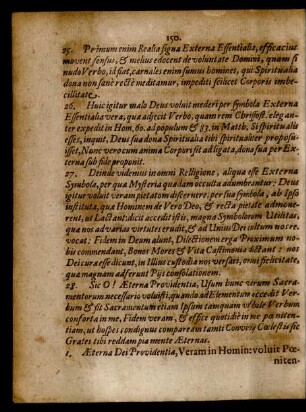 150.
25. Primum enim Realia signa Externa Essentialia, efficacius
movent sensus, & melius edocent de voluntate Domini, quam si
nudo Verbo, id fiat, carnales enim sumus homines, qui Spiritualia
dona non sanè rectè meditamur, impediti scilicet Corporis imbe-
cillitate.
26. Huic igitur malo Deus voluit mederi per symbola Externa
Essentialia vera, qua adjecit Verbo, quam rem Chrisost. elegan-
ter expedit in Hom. 60. ad populum & 83. in Matth. Si spiritualis
esses, inquit, Deus sua dona Spiritualia tibi spiritualiter proposu-
isset, Nunc vero cum anima Corpori sit alligata, dona sua per Ex-
terna sub side proponit.
27. Deinde videmus in omni Religione, aliqua esse Externa
Symbola, per qua Mysteria quædam occulta adumbrantur: Deus
igitur voluit veram pietatem discernere, per sua symbola, ab Ipso
instituta, qua Hominem de Vero Deo, & recta pietate admone-
rent, ut Lactant: dicit accedit istis, magna Symbolorum Utilitas,
qua nos ad varias virtutes erudit, & ad Unius Dei cultum nos re-
vocat: Fidem in Deum alunt, Dilectionem erga Proximum no-
bis commendant, Bonos Mores & Vita Castimoniã dictant: nos
Dei cura esse dicunt, in Illius custodia nos versari, omni felicitate,
qua magnam adserunt Pijs consolationem.
28. Sic O! Æterna Providentia, Usum hunc verum Sacra-
mentorum necessario voluisti, quando ad Elementom accedit Ver-
bum & fit Sacramentum etiam Ipsum tamquam visibile Verbum
conforta in me, Fidem veram, & effice quotidie in me pœniten-
tiam, ut hospes condignus compaream tamti Convivij Cœlestis sic
Grates tibi reddam pia mente Æternas.
1. Æterna Dei Providentia, Veram in Homin: voluit Pœ-
niten-